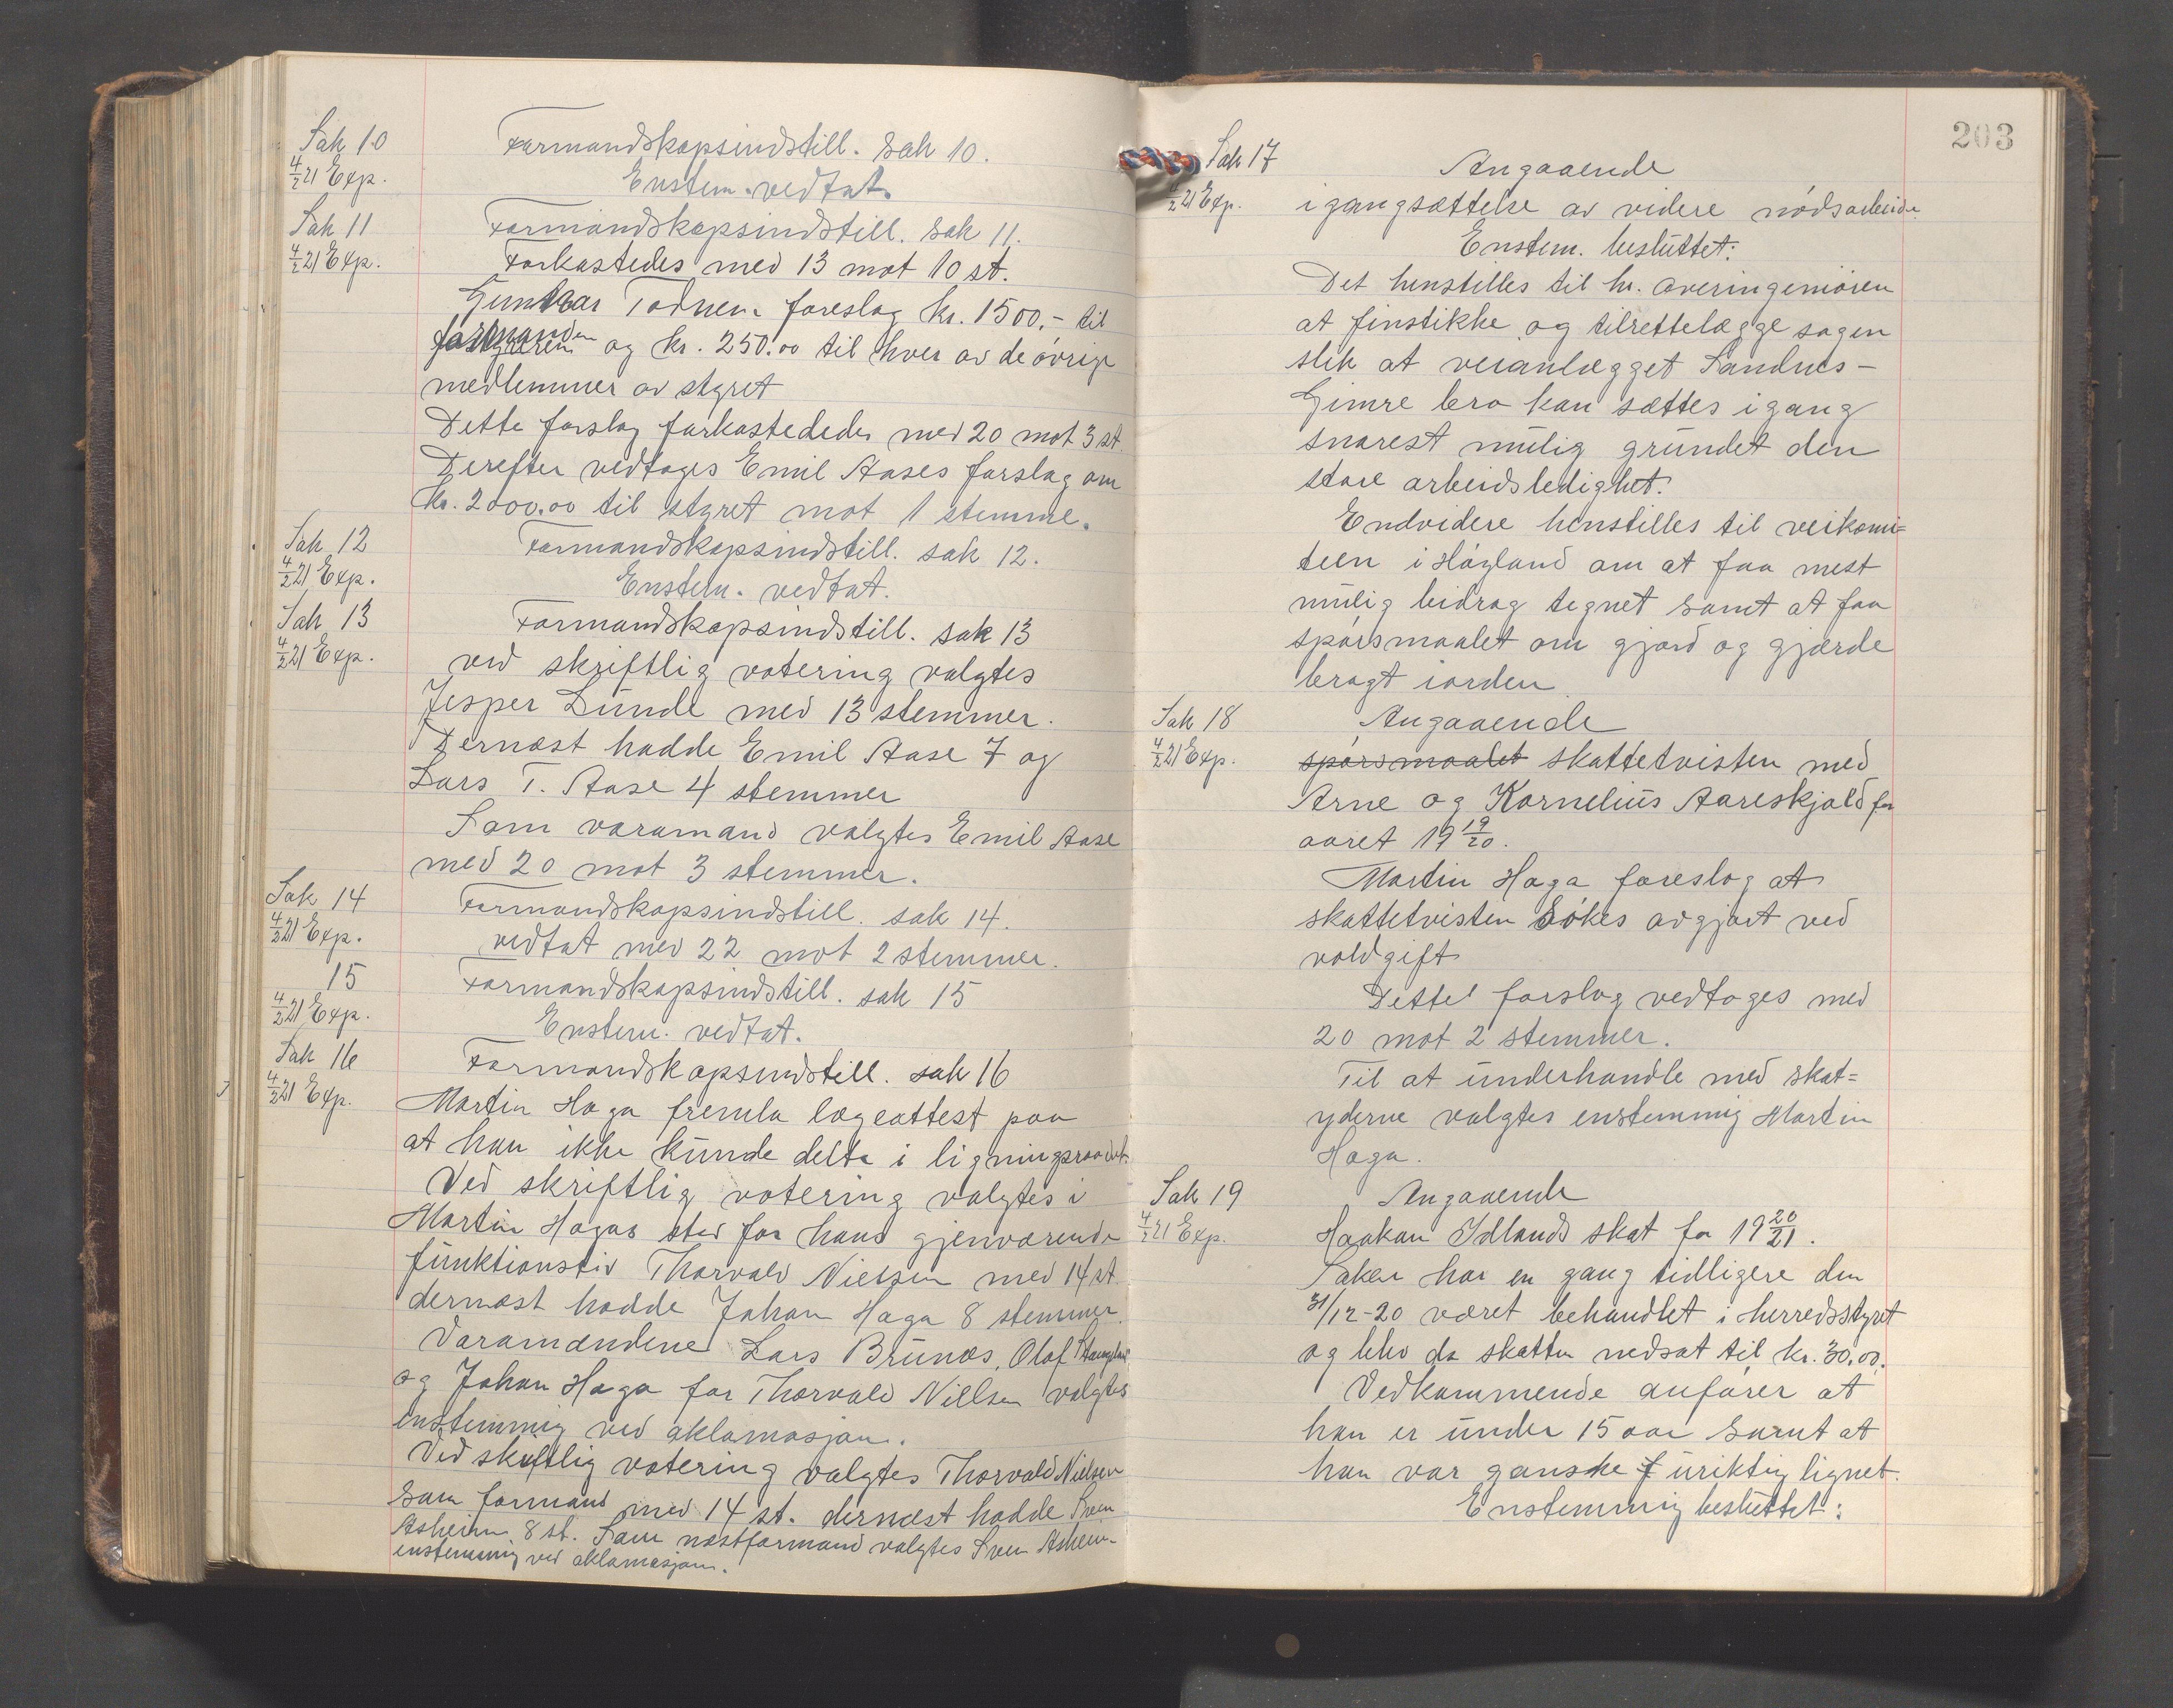 Sak 10
4/2 21 Exp.
Formandskapsindstill. sak 10.
Enstem. vedtat.
Sak 11
4/2 21 Exp.
Formandskapsindstill. sak 11.
Forkastedes med 13 mot 10 st.
Gunnar Tødnem foreslog kr. 1500,- til
formanden og kr. 250.00 til hver av de øvrige
medlemmer av styret
Dette forslag forkastededes med 20 mot 3 st.
Derefter vedtoges Emil Aases forslag om
kr. 2000,00 til styret mot 1 stemme.
Sak 12
4/2 21 Exp.
Formandskapsindstill. sak 12.
Enstem. vedtat.
Sak 13
4/2 21 Exp.
Formandskapsindstill. sak 13
ved skriftlig votering valgtes
Jesper Lunde med 13 stemmer.
Dernæst hadde Emil Aase 7 og
Lars T. Aase 4 stemmer
Som varamand valgtes Emil Aase
med 20 mot 3 stemmer.
Sak 14
4/2 21 Exp.
Formandskapsindstill. sak 14.
vedtat med 22 mot 2 stemmer.
15
4/2 21 Exp.
Formandskapsindstill. sak 15
Enstem. vedtat.
Sak 16
4/2 21 Exp.
Formandskapsindstill. sak 16
Martin Haga fremla lægeattest paa
at han ikke kunde delta i ligningsraadet.
Ved skriftlig votering valgtes i
Martin Hagas sted for hans gjenværende
funktionstid Thorvald Nielsen med 14 st.
dernæst hadde Johan Haga 8 stemmer.
Varamændene Lars Brunæs, Olof Stangeland
og Johan Haga for Thorvald Nielsen valgtes
enstemmig ved aklamasjon.
Ved skriftlig votering valgtes Thorvald Nielsen
som formand med 14 st. dernæst hadde Sven
Asheim 8 st. Som næstformand valgtes Sven Asheim
enstemmig ved aklamasjon.
203
Sak 17
4/2 21 Exp.
Angaaende
igangsættelse av videre nødsarbeide
Enstem. besluttet:
Det henstilles til hr. overingeniøren
at finstikke og tilrettelægge sagen
slik at veianlægget Sandnes-
Gimre bro kan sættes igang
snarest mulig grundet den
store arbeidsledighet.
Endvidere henstilles til veikomi=
teen i Høyland om at faa mest
mulig bidrag tegnet samt at faa
spørsmaalet om gjord og gjærde
bragt iorden.
Sak 18
4/2 21 Exp.
Angaaende
spørsmaalet skattetvisten med
Arne og Kornelius Aareskjold for
aaret 19 19/20.
Martin Haga foreslog at
skattetvisten søkes avgjort ved
voldgift
Dette forslag vedtoges med
20 mot 2 stemmer.
Til at underhandle med skat=
yderne valgtes enstemmig Martin
Haga.
Sak 19
4/2 21 Exp.
Angaaende
Haakon Idlands skat for 19 20/21.
Saken har en gang tidligere den
31/12-20 været behandlet i herredsstyret
og blev da skatten nedsat til kr. 30,00.
Vedkommende anfører at
han er under 15 aar samt at
han var ganske uriktig lignet.
Enstemmig besluttet: